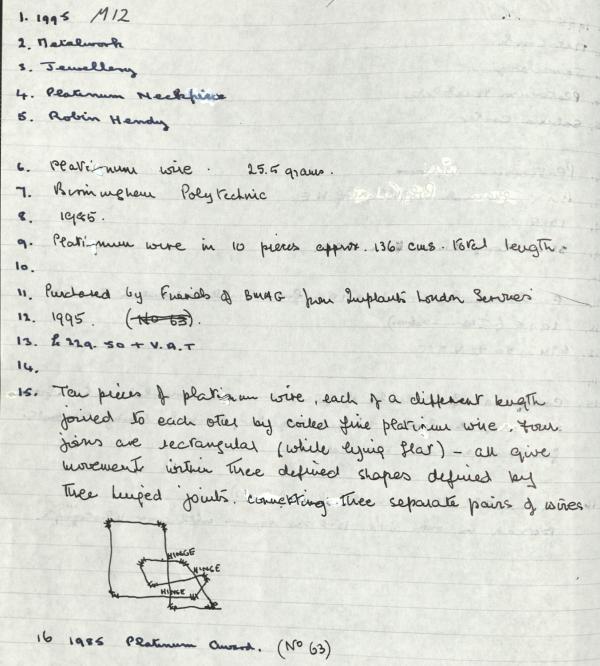 1. 1995 M12
2. Metalwork
3. Jewellery
4. Platinum Neckpiece
5. Robin Hendy
6. Platinum wire. 25.5 grams.
7. Birmingham Polytechnic
8. 1985.
9. Platinum wire in 10 pieces approx. 136 cms. total length.
10.
11. Purchased by Friends of BMAG from Implants London Services
12. 1995. (No 63).
13. £329.50 + V.A.T
14.
15. Ten pieces of platinum wire, each of a different length
joined to each other by coiled fine platinum wire. Four
joins are rectangular (while lying flat) - all give
movement within three defined shapes defined by
three hinged joints. connecting three separate pairs of wires
HINGE
HINGE
HINGE
16 1985 Platinum Award. (No 63)